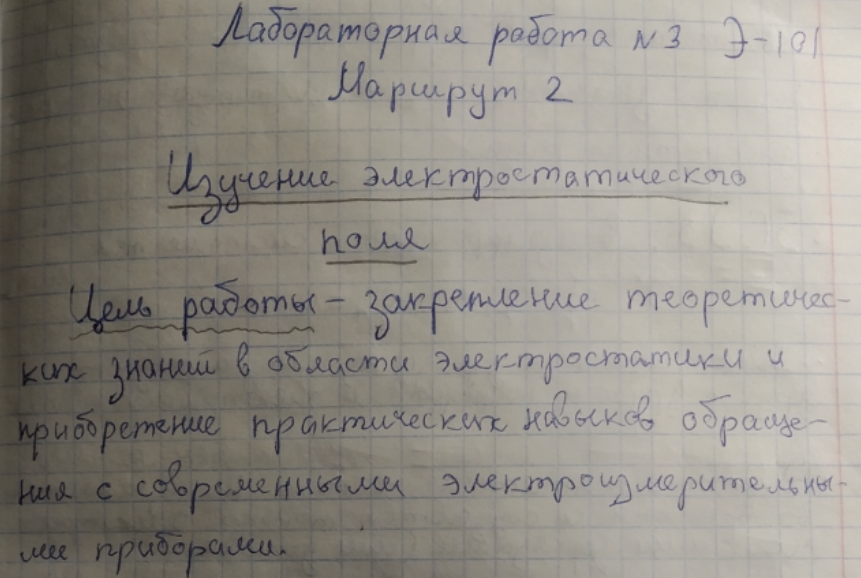 Лабораторная работа N3 Э-101
Маршрут 2
Изучение электростатического
поля
Цель работы - закрепление теоретичес-
ких знаний в области электростатики и
приобретение практических навыков обраще-
ния с современными электроизмерительны-
ми приборами.